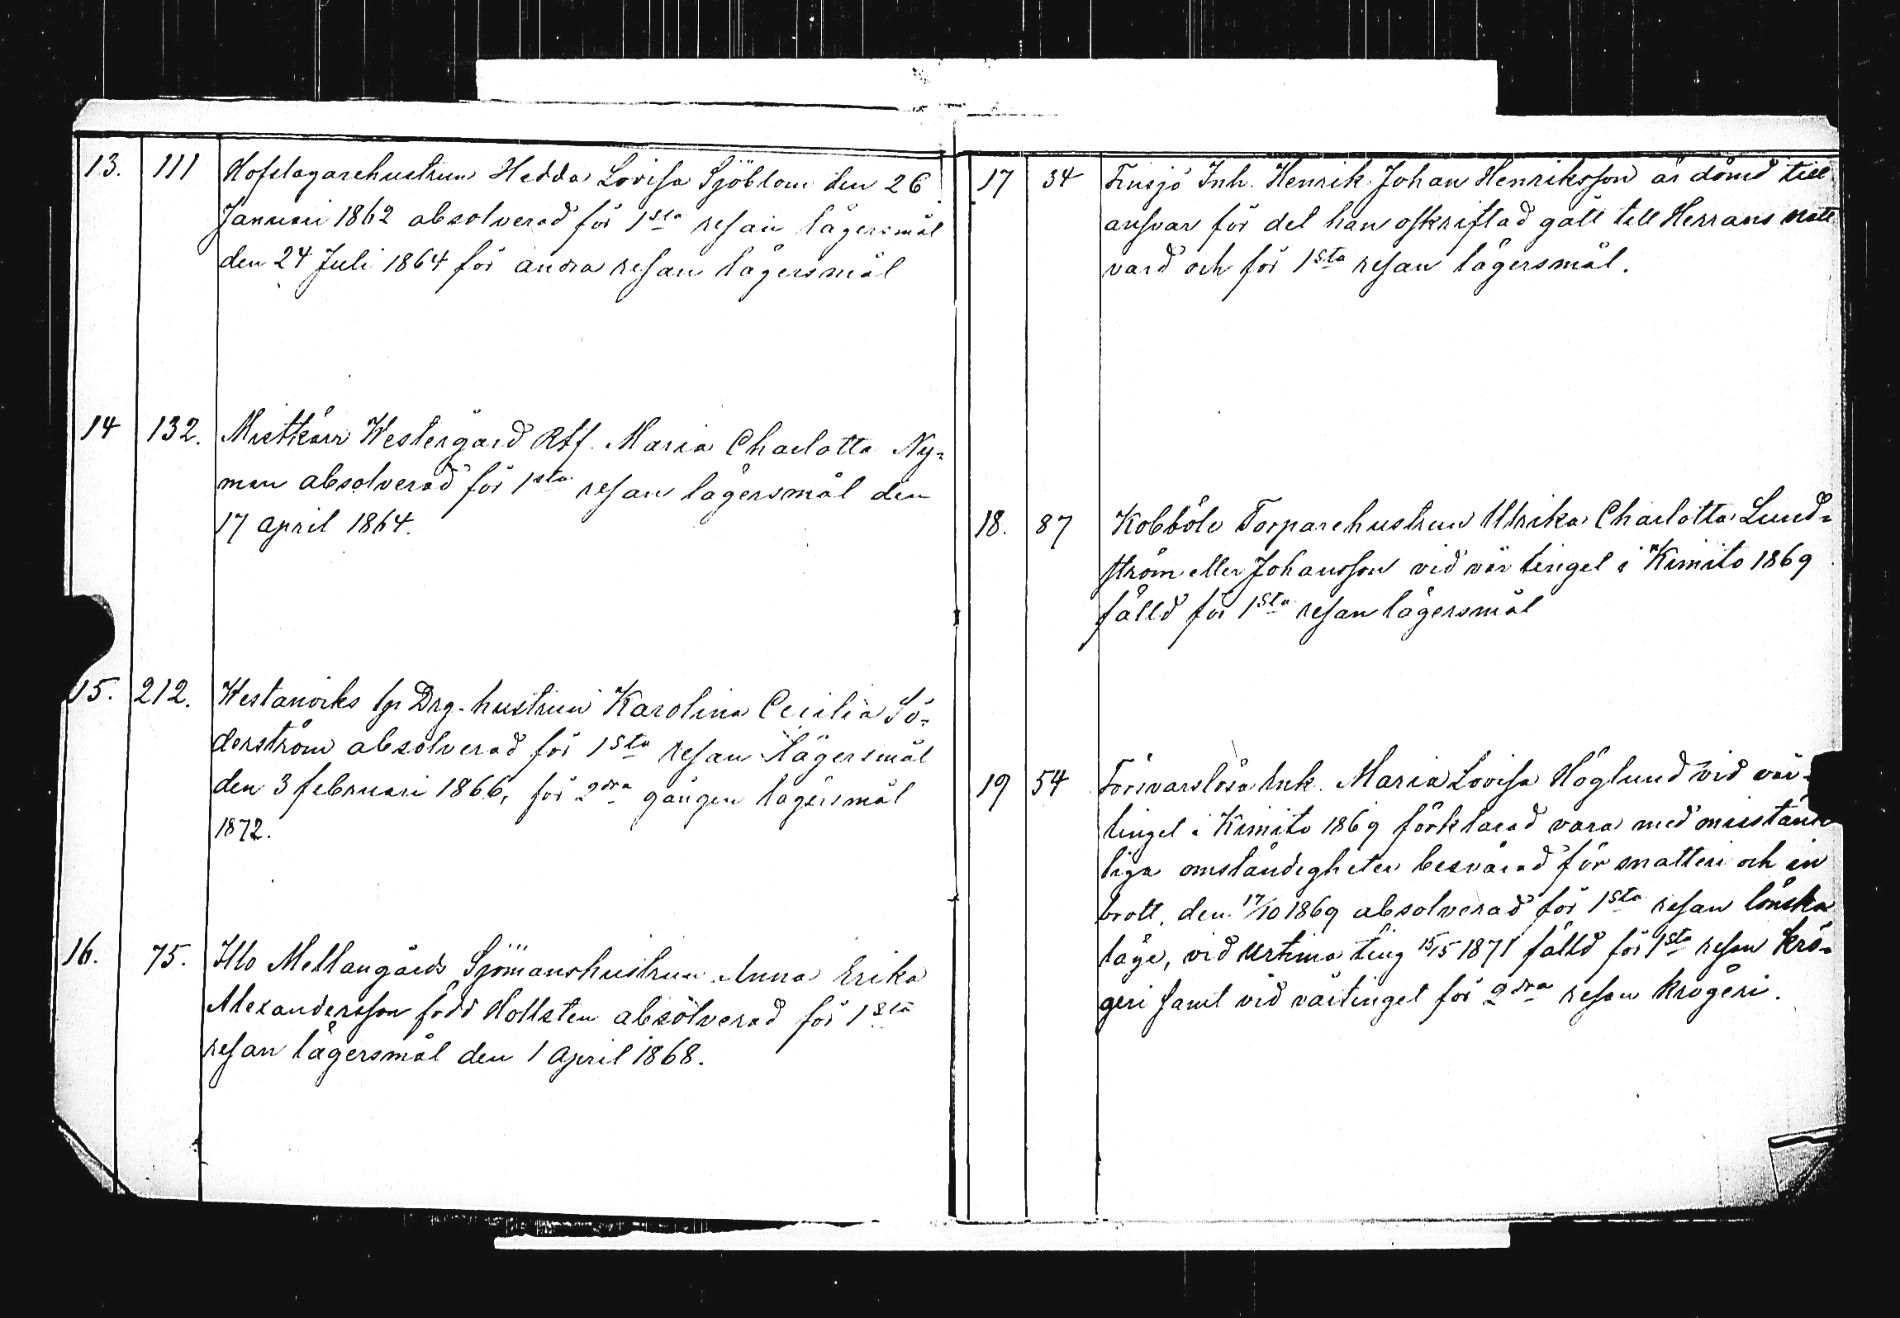 13. 111 Hofslagarehustrun Hedda Lovisa Sjöblom den 26
Januari 1862 absolverad för 1sta resan lägersmål
den 24 Juli 1864 för andra resan lägersmål
14 132. Mietkärr Westergård Rtf. Maria Charlotta Ny=
man absolverad för 1sta resan lägersmål den
17 april 1864.
15. 212. Westanviks bp Drg. hustrun Karolina Cecilia Sö=
derström absolverad för 1sta resan lägersmål
den 3 februari 1866, för 2dra gången lägersmål
1872.
16. 75. Illo Mellangårds Sjömanshustrun Anna Erika
Alexandersson född Hollsten absolverad för 1sta
resan lägersmål den 1 april 1868.
17 34 Finsjö Inh. Henrik Johan Henriksson är dömd till
ansvar för det han oskriftad gått till Herrans natt
vard och för 1sta resan lägersmål.
18. 87 Kobböle Torparehustrun Ulrika Charlotta Lund=
ström eller Johansson vid vår tinget i Kimito 1869
fälld för 1sta resan lägersmål
19 54 Försvarslösa Enk. Maria Lovisa Höglund vid vår=
tinget i Kimito 1869 förklarad vara med misstänk
liga omständigheter besvärad för snatteri och in
brott, den 17/10 1869 absolverad för 1sta resan lönska
läge, vid Urtima ting 15/5 1871 fälld för 1sta resan krö=
geri samt vid vårtinget för 2dra resan krögeri.